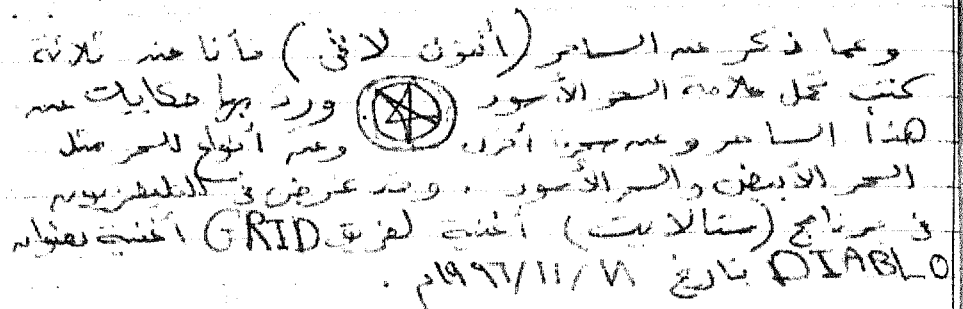 وعما ذكر عن الساحر (أنتون لافى) فأنا عند ثلاثة
كتب تحمل علامة السحر الأسود ورد بها حكايات عن
هذا الساحر وعن أنواع السحر مثل
السحر الأبيض والسحر الأسود . وقد عرض في التليفزيون
في برنامج (ستالايت) أغنية لفريق GRID أغنية بعنوان
DIABLO بتاريخ /١١/١٩٩٦م .